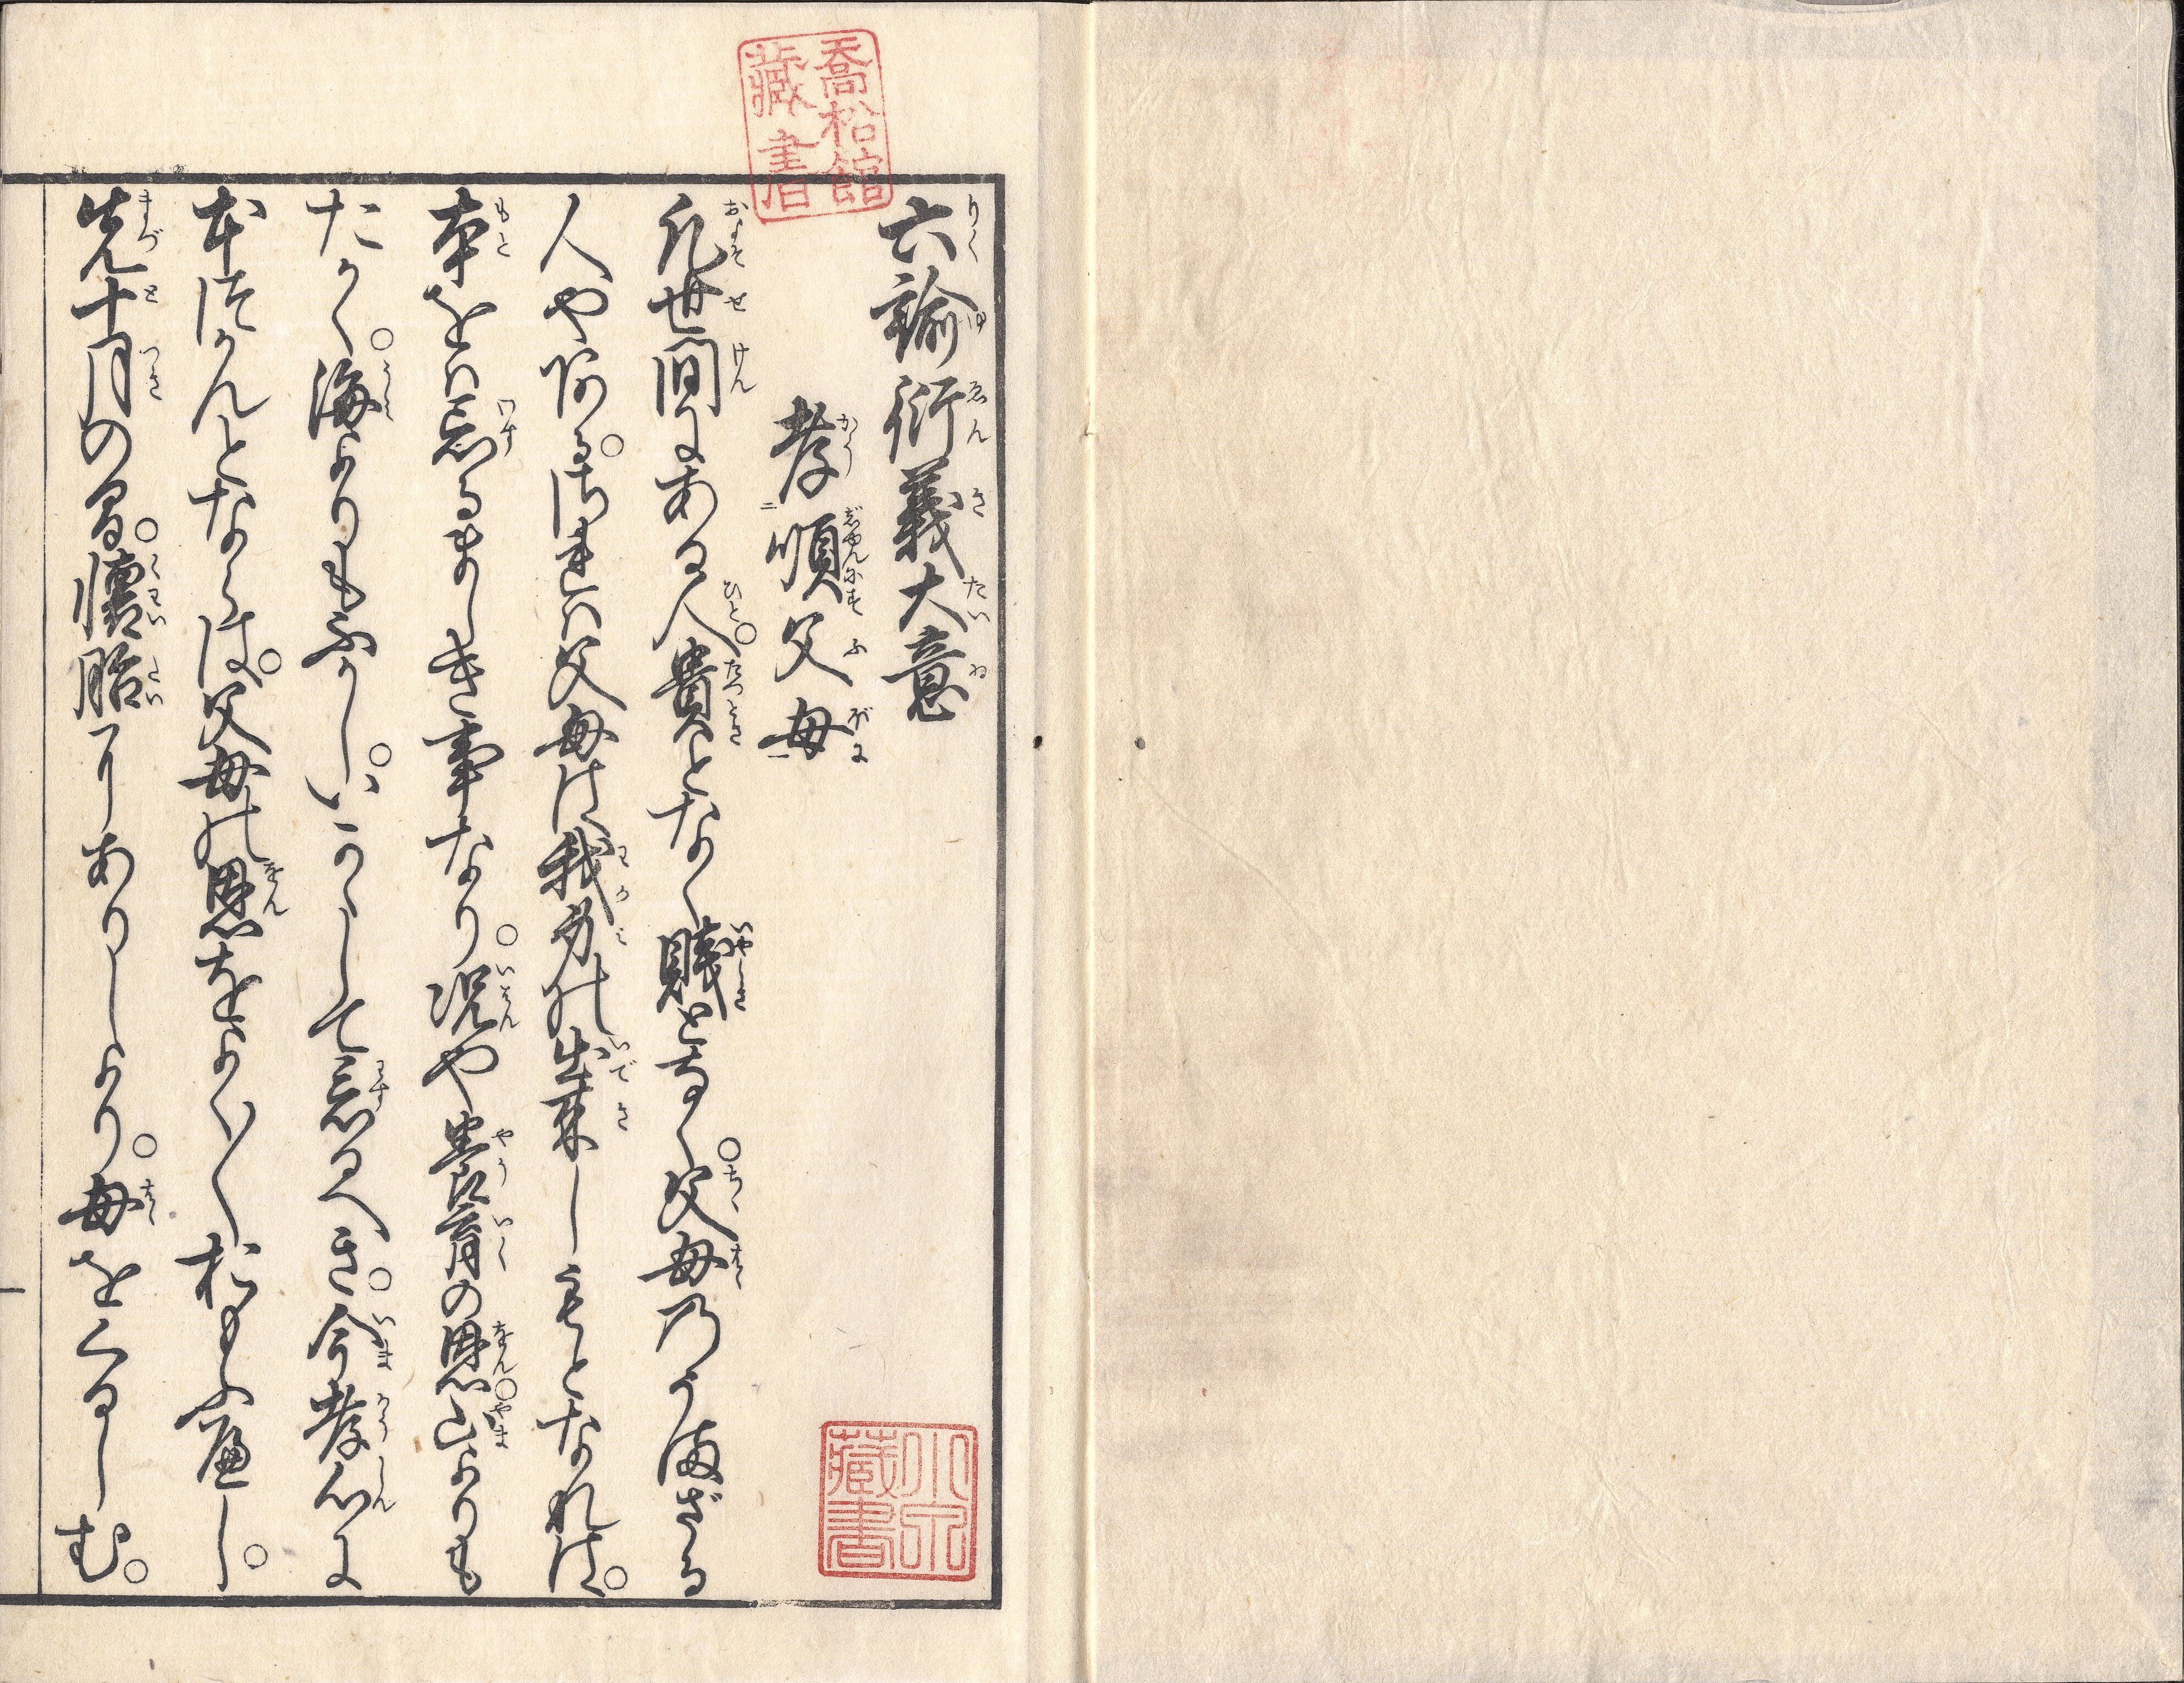 六諭衍義大意
孝順父母
凡世間にある人。貴となく賤となく。父母のうまざる
人やある。されは父母は我身の出来しもとなれは。
本をは忘るましき事なり。況や養育の恩。山よりも
たかく。海よりもふかし。いかゝして忘るへき。今孝心に
本つかんとならは。父母の恩をよく〳〵おもふへし。
先十月の間。懐胎にありしより。母をくるしむ。
喬松館
藏書
藏書